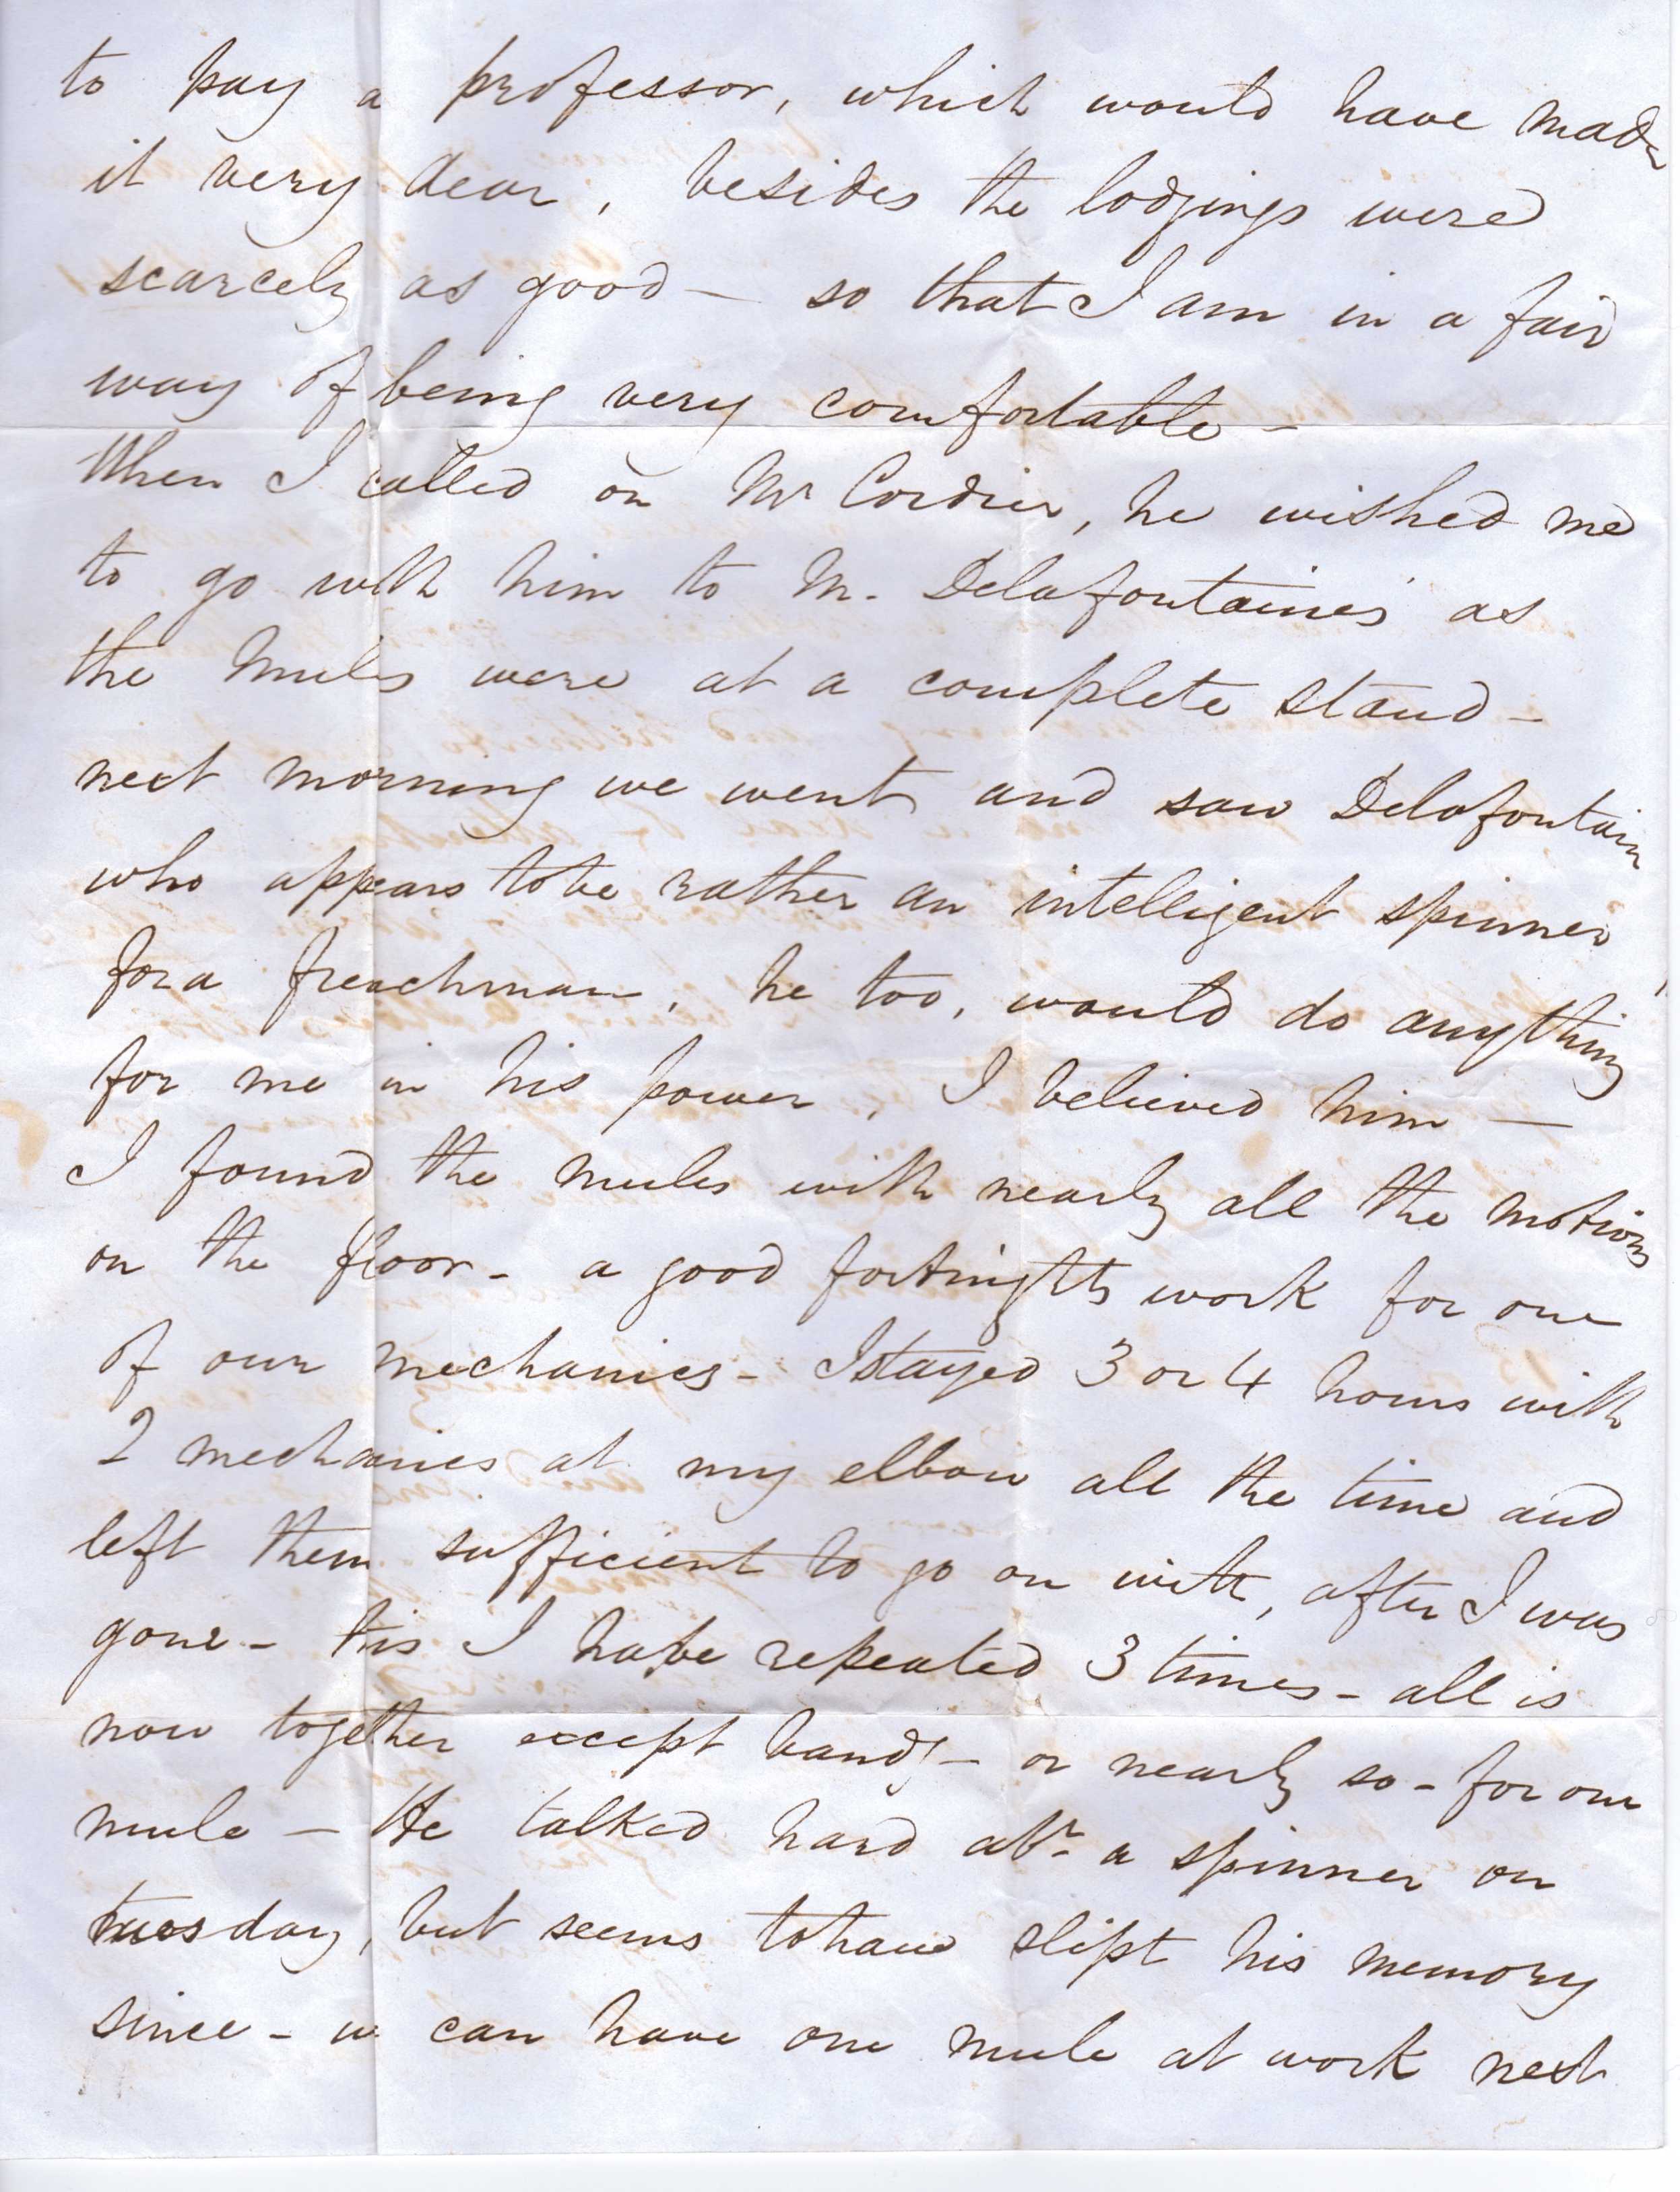 to pay a professor, which would have made
it very dear, besides the lodgings were
scarcely as good — so that I am in a fair
way of being very comfortable —
When I called on Mr Cordier, he wished me
to go with him to M. Delafontaines as
the mules were at a complete stand —
next morning we went and saw Delafontain
who appears to be rather an intelligent spinner
for a frenchman, he too, would do anything
for me in his power, I believed him —
I found the mules with nearly all the motions
on the floor - a good fortnights work for one
of our mechanics - I stayed 3 or 4 hours with
2 mechanics at my elbow all the time and
left them sufficient to go on with, after I was
gone - this I have repeated 3 times - all is
now together except bands - or nearly so - for one
mule — He talked hard abt a spinner on
tuesday, but seems to have slipt his memory
since - we can have one mule at work next